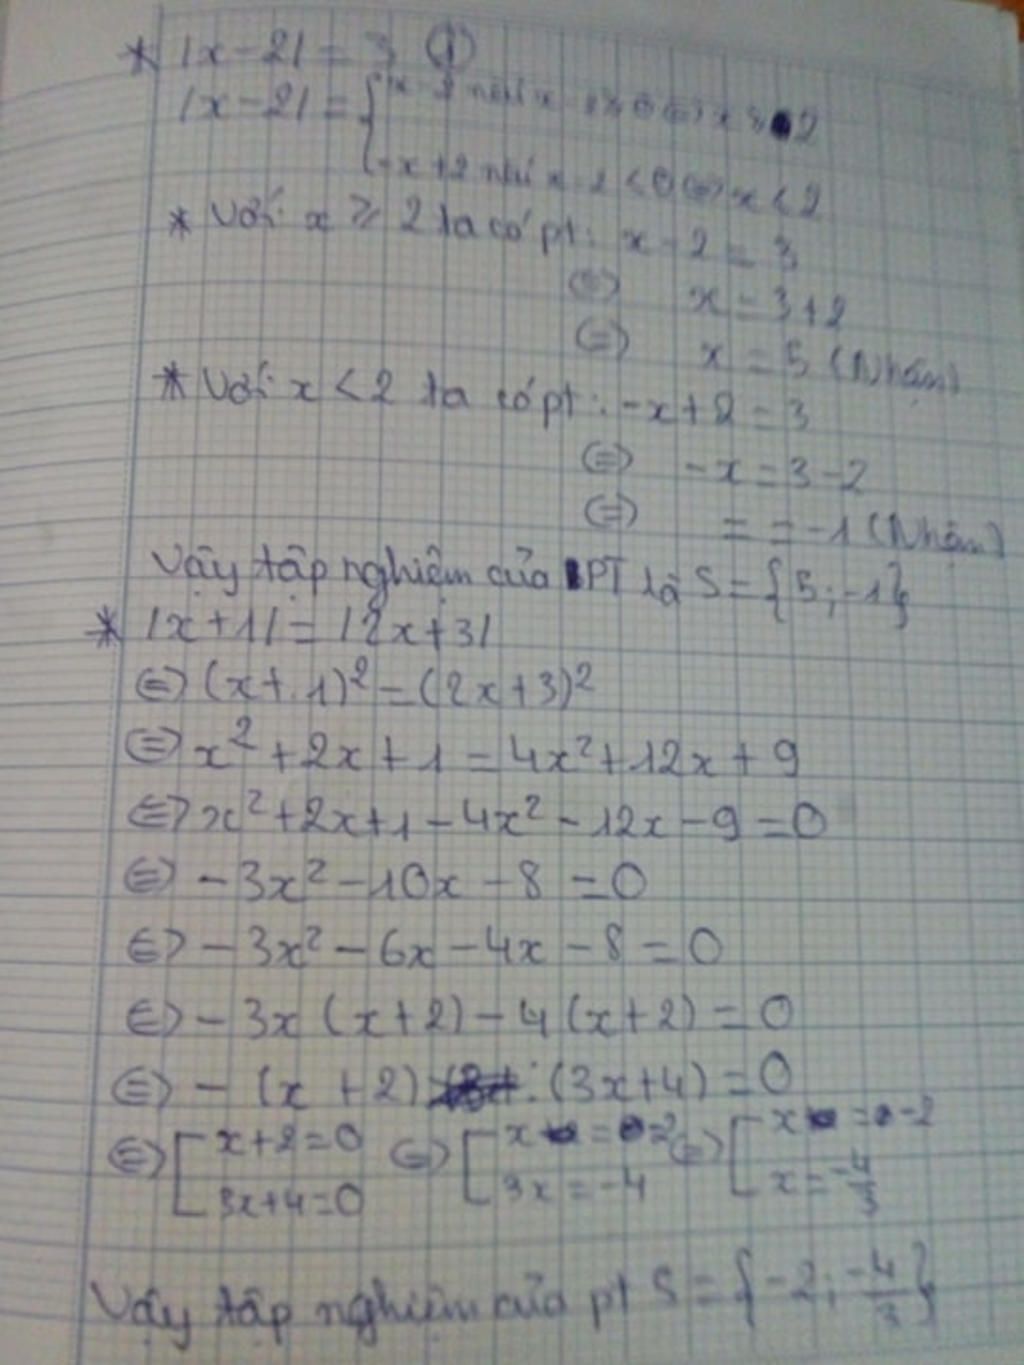 * |x-2| = 3 (1)
|x-2| = { x-2 nếu x-2 ≥ 0 (=) x ≥ 2
-x+2 nếu x-2 < 0 (=) x < 2
* Với x ≥ 2 ta có pt: x-2 = 3
(=) x = 3+2
(=) x = 5 (Nhận)
* Với x < 2 ta có pt: -x+2 = 3
(=) -x = 3-2
(=) = = -1 (Nhận)
Vậy tập nghiệm của PT là S = {5; -1}
* |x+1| = |2x+3|
(=) (x+1)² = (2x+3)²
(=) x² + 2x + 1 = 4x² + 12x + 9
(=) x² + 2x + 1 - 4x² - 12x - 9 = 0
(=) -3x² - 10x - 8 = 0
(=) -3x² - 6x - 4x - 8 = 0
(=) -3x (x+2) - 4 (x+2) = 0
(=) - (x+2) . (3x+4) = 0
(=) [ x+2=0 (=) [ x = -2 (=) [ x = -2
3x+4=0 3x = -4 x = -4/3
Vậy tập nghiệm của pt S = {-2; -4/3}